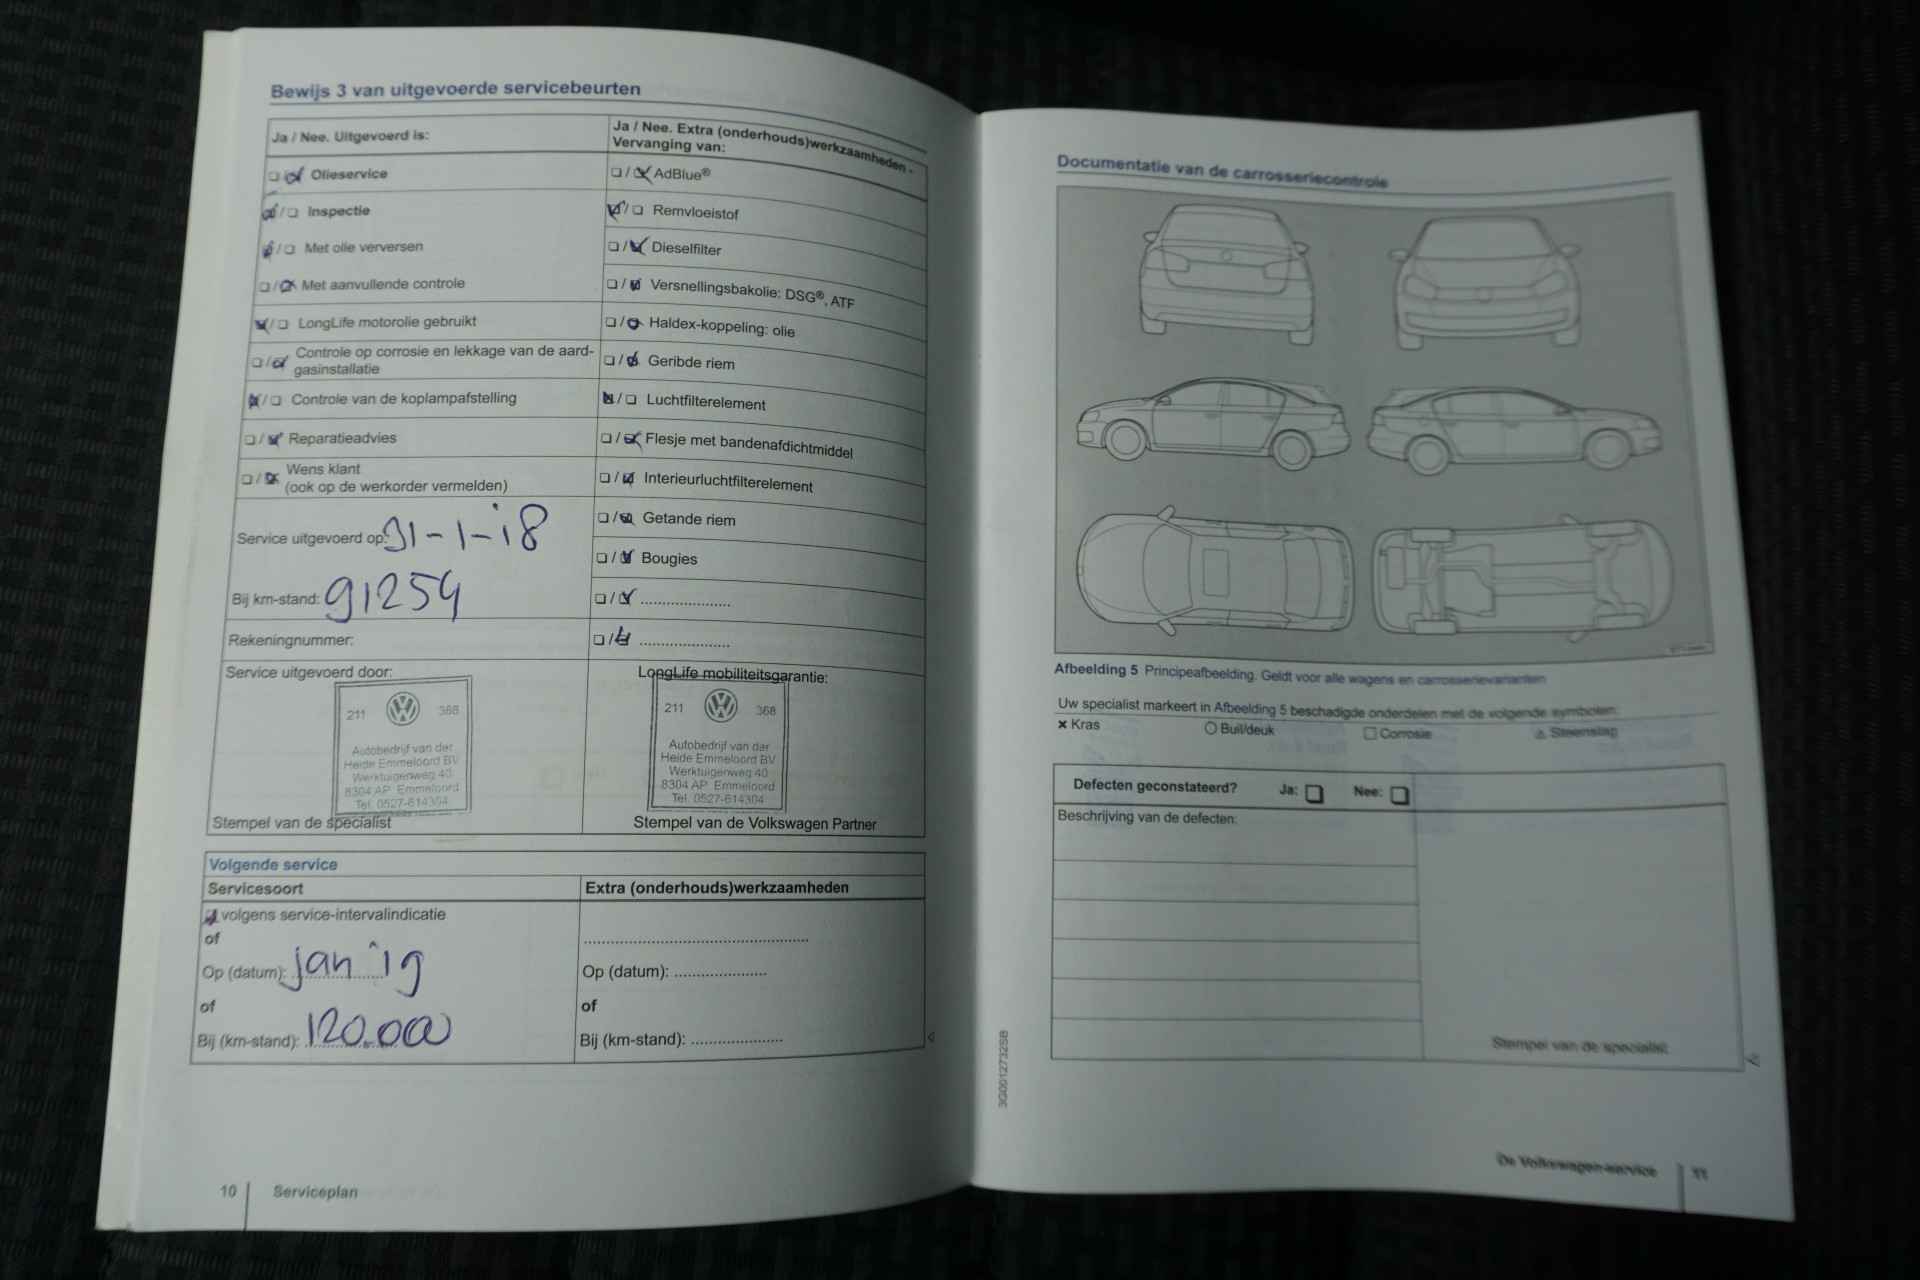 Bewijs 3 van uitgevoerde servicebeurten
Ja / Nee. Uitgevoerd is:
Olieservice
Inspectie
Met olie verversen
Met aanvullende controle
LongLife motorolie gebruikt
Controle op corrosie en lekkage van de aard-
gasinstallatie
Controle van de koplampafstelling
Reparatieadvies
Wens klant
(ook op de werkorder vermelden)
Service uitgevoerd op: 31-1-18
Bij km-stand: 91254
Rekeningnummer:
Service uitgevoerd door:
211 368
Autobedrijf van der
Heide Emmeloord BV
Werktuigenweg 40
8304 AP Emmeloord
Tel. 0527-614304
Stempel van de specialist
Ja / Nee. Extra (onderhouds)werkzaamheden -
Vervanging van:
AdBlue®
Remvloeistof
Dieselfilter
Versnellingsbakolie: DSG®, ATF
Haldex-koppeling: olie
Geribde riem
Luchtfilterelement
Flesje met bandenafdichtmiddel
Interieurluchtfilterelement
Getande riem
Bougies
LongLife mobiliteitsgarantie:
211 368
Autobedrijf van der
Heide Emmeloord BV
Werktuigenweg 40
8304 AP Emmeloord
Tel. 0527-614304
Stempel van de Volkswagen Partner
Volgende service
Servicesoort
volgens service-intervalindicatie
of
Op (datum): jan '19
of
Bij (km-stand): 120.000
Extra (onderhouds)werkzaamheden
Op (datum): ....................
of
Bij (km-stand): ....................
10 Serviceplan
Documentatie van de carrosseriecontrole
Afbeelding 5 Principeafbeelding. Geldt voor alle wagens en carrosserievarianten
Uw specialist markeert in Afbeelding 5 beschadigde onderdelen met de volgende symbolen:
× Kras
Buil/deuk
Corrosie
Steenslag
Defecten geconstateerd? Ja: Nee:
Beschrijving van de defecten:
Stempel van de specialist
3G0012732SB
De Volkswagen-service 11